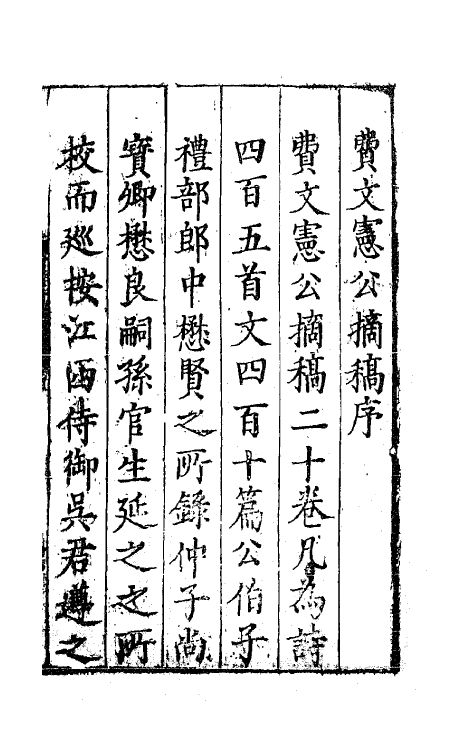 費文憲公摘稿序
費文憲公摘稿二十卷凡為詩
四百五首文四百十篇公伯子
禮部郎中懋賢之所錄仲子尚
寶卿懋良嗣孫官生延之之所
挍而巡按江西侍御吳君遵之